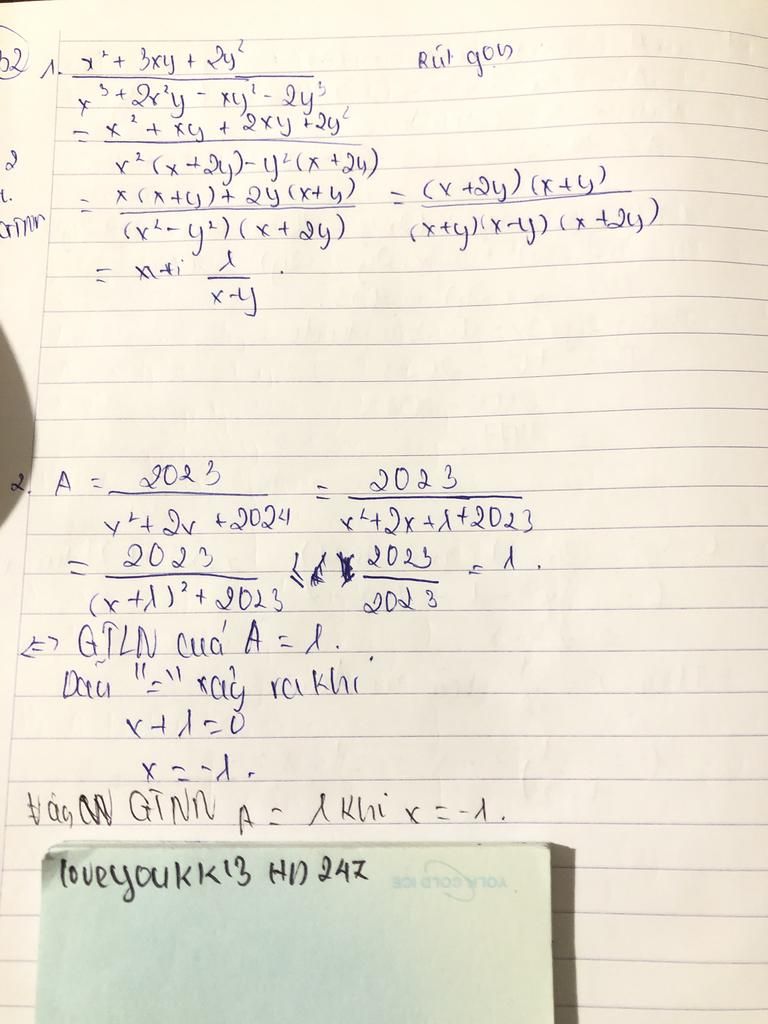 32
1. x² + 3xy + 2y² / x³ + 2x²y - xy² - 2y³ Rút gọn
= x² + xy + 2xy + 2y² / x²(x + 2y) - y²(x + 2y)
2
= x(x+y) + 2y(x+y) / (x² - y²)(x + 2y) = (x+2y)(x+y) / (x+y)(x-y)(x+2y)
= 1 / x-y .
2. A = 2023 / x²+2x+2024 = 2023 / x²+2x+1+2023
= 2023 / (x+1)²+2023 ≤ 2023 / 2023 = 1.
<=> GTLN củả A = 1.
Dấu "=" xảy ra khi
x + 1 = 0
x = -1.
GTNN A = 1 khi x = -1.
loveyoukk13 HD 247
YOLK COLD ICE